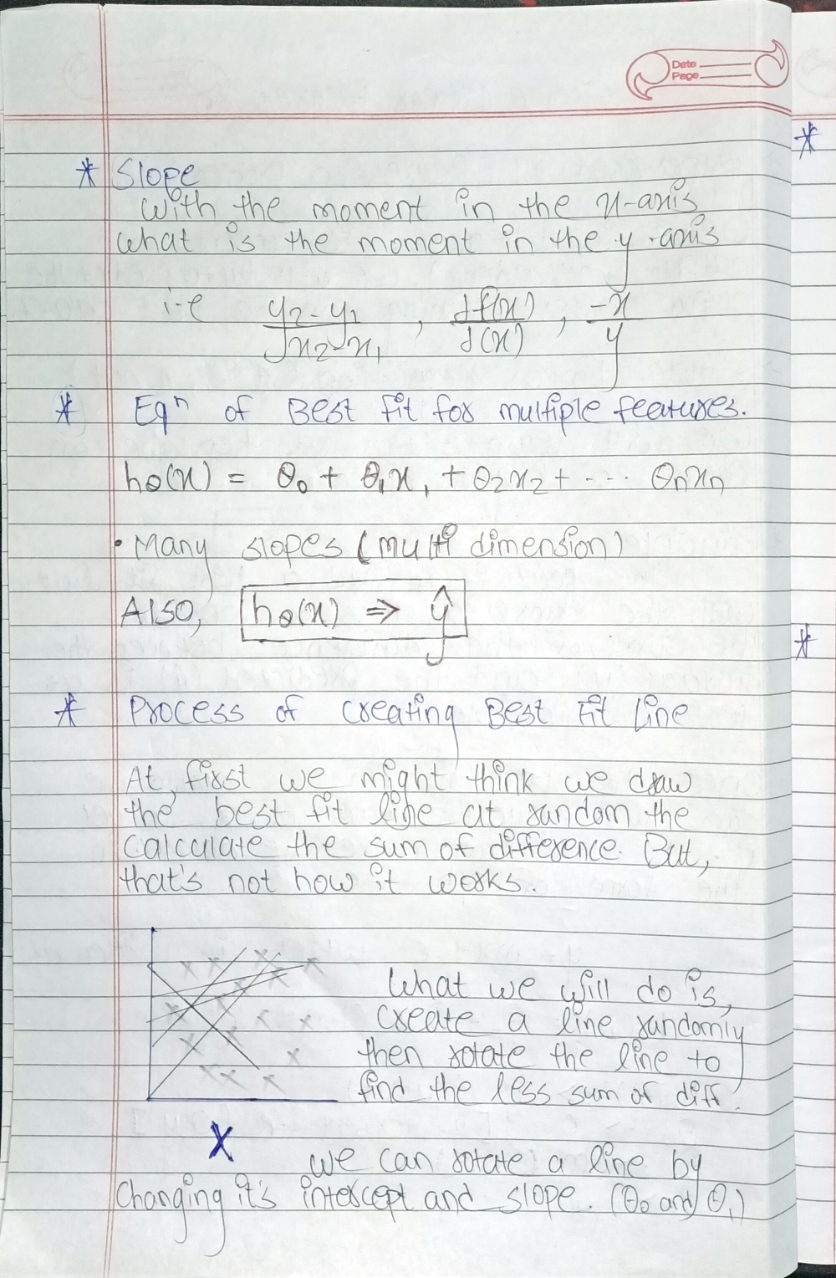 Date
Page
* Slope
with the moment in the x-axis
what is the moment in the y-axis
i-e y2-y1/x2-x1 , df(x)/d(x) , -x/y
* Eqn of Best Fit for multiple features.
hθ(x) = θ0 + θ1x1 + θ2x2 + --- θnxn
• Many slopes (multi dimension)
Also, hθ(x) ⇒ ŷ
* Process of creating Best Fit Line
At first we might think we draw
the best fit line at random the
calculate the sum of difference. But,
that's not how it works.
What we will do is,
create a line randomly
then rotate the line to
find the less sum of diff.
X
we can rotate a line by
Changing it's intercept and slope. (θ0 and θ1)